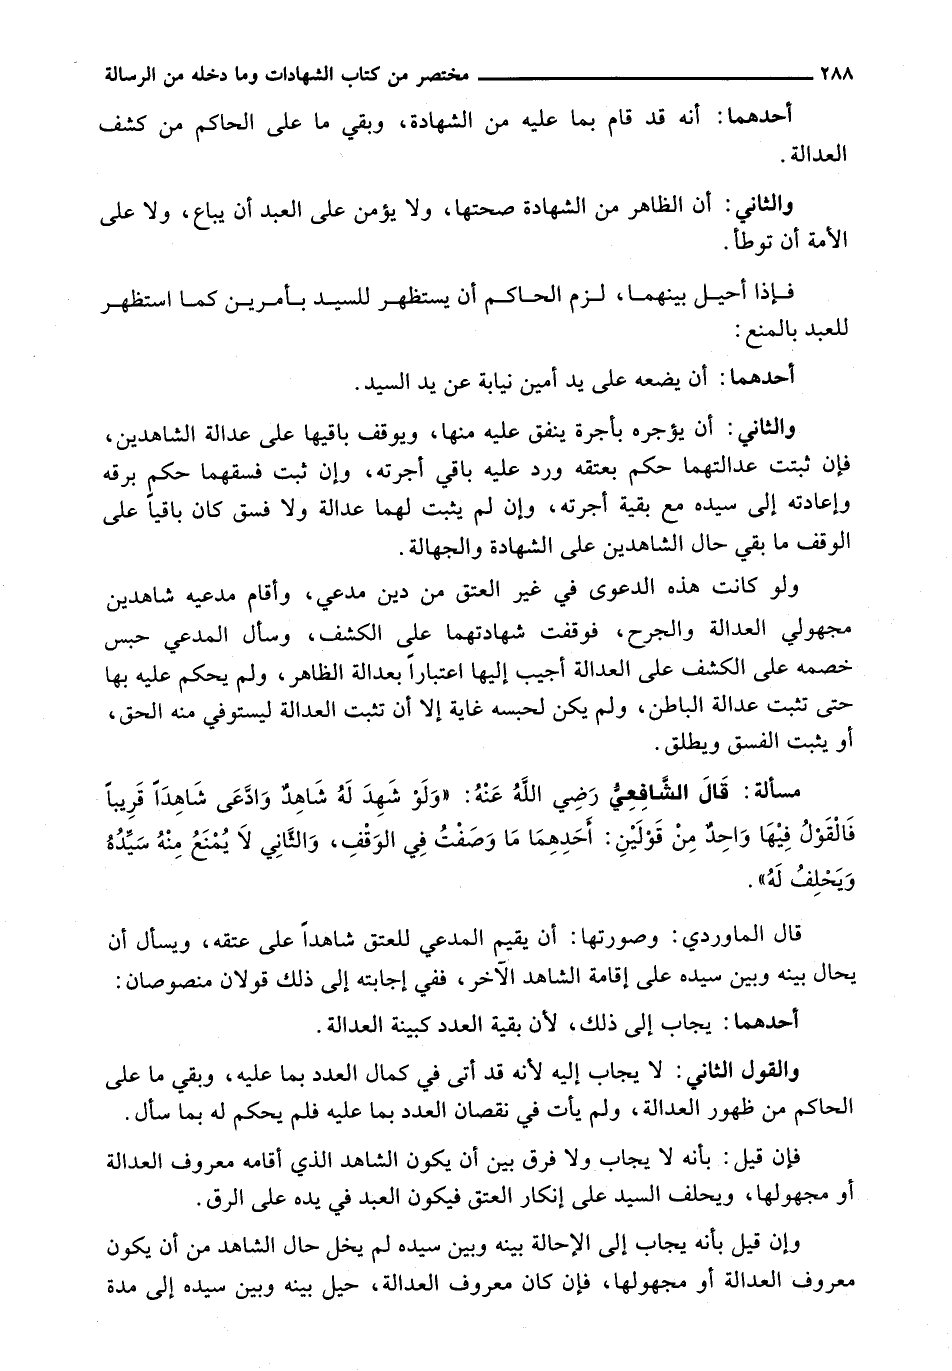 ٢٨٨ ــــــــــــــــــــــــــــــــــــــــ مختصر من كتاب الشهادات وما دخله من الرسالة
أحدهما: أنه قد قام بما عليه من الشهادة، وبقي ما على الحاكم من كشف
العدالة.
والثاني: أن الظاهر من الشهادة صحتها، ولا يؤمن على العبد أن يباع، ولا على
الأمة أن توطأ.
فإذا أحيل بينهما، لزم الحاكم أن يستظهر للسيد بأمرين كما استظهر
للعبد بالمنع:
أحدهما: أن يضعه على يد أمين نيابة عن يد السيد.
والثاني: أن يؤجره بأجرة ينفق عليه منها، ويوقف باقيها على عدالة الشاهدين،
فإن ثبتت عدالتهما حكم بعتقه ورد عليه باقي أجرته، وإن ثبت فسقهما حكم برقه
وإعادته إلى سيده مع بقية أجرته، وإن لم يثبت لهما عدالة ولا فسق كان باقياً على
الوقف ما بقي حال الشاهدين على الشهادة والجهالة.
ولو كانت هذه الدعوى في غير العتق من دين مدعي، وأقام مدعيه شاهدين
مجهولي العدالة والجرح، فوقفت شهادتهما على الكشف، وسأل المدعي حبس
خصمه على الكشف على العدالة أجيب إليها اعتباراً بعدالة الظاهر، ولم يحكم عليه بها
حتى تثبت عدالة الباطن، ولم يكن لحبسه غاية إلا أن تثبت العدالة ليستوفي منه الحق،
أو يثبت الفسق ويطلق.
مسألة: قَالَ الشَّافِعِيُّ رَضِي اللَّهُ عَنْهُ: «وَلَوْ شَهِدَ لَهُ شَاهِدٌ وَادَّعَى شَاهِدَاً قَرِيباً
فَالْقَوْلُ فِيْهَا وَاحِدٌ مِنْ قَوْلَيْنِ: أَحَدِهِمَا مَا وَصَفْتُ فِي الوَقْفِ، وَالثَّانِي لَا يُمْنَعُ مِنْهُ سَيِّدُهُ
وَيَحْلِفُ لَهُ».
قال الماوردي: وصورتها: أن يقيم المدعي للعتق شاهداً على عتقه، ويسأل أن
يحال بينه وبين سيده على إقامة الشاهد الآخر، ففي إجابته إلى ذلك قولان منصوصان:
أحدهما: يجاب إلى ذلك، لأن بقية العدد كبينة العدالة.
والقول الثاني: لا يجاب إليه لأنه قد أتى في كمال العدد بما عليه، وبقي ما على
الحاكم من ظهور العدالة، ولم يأت في نقصان العدد بما عليه فلم يحكم له بما سأل.
فإن قيل: بأنه لا يجاب ولا فرق بين أن يكون الشاهد الذي أقامه معروف العدالة
أو مجهولها، ويحلف السيد على إنكار العتق فيكون العبد في يده على الرق.
وإن قيل بأنه يجاب إلى الإحالة بينه وبين سيده لم يخل حال الشاهد من أن يكون
معروف العدالة أو مجهولها، فإن كان معروف العدالة، حيل بينه وبين سيده إلى مدة